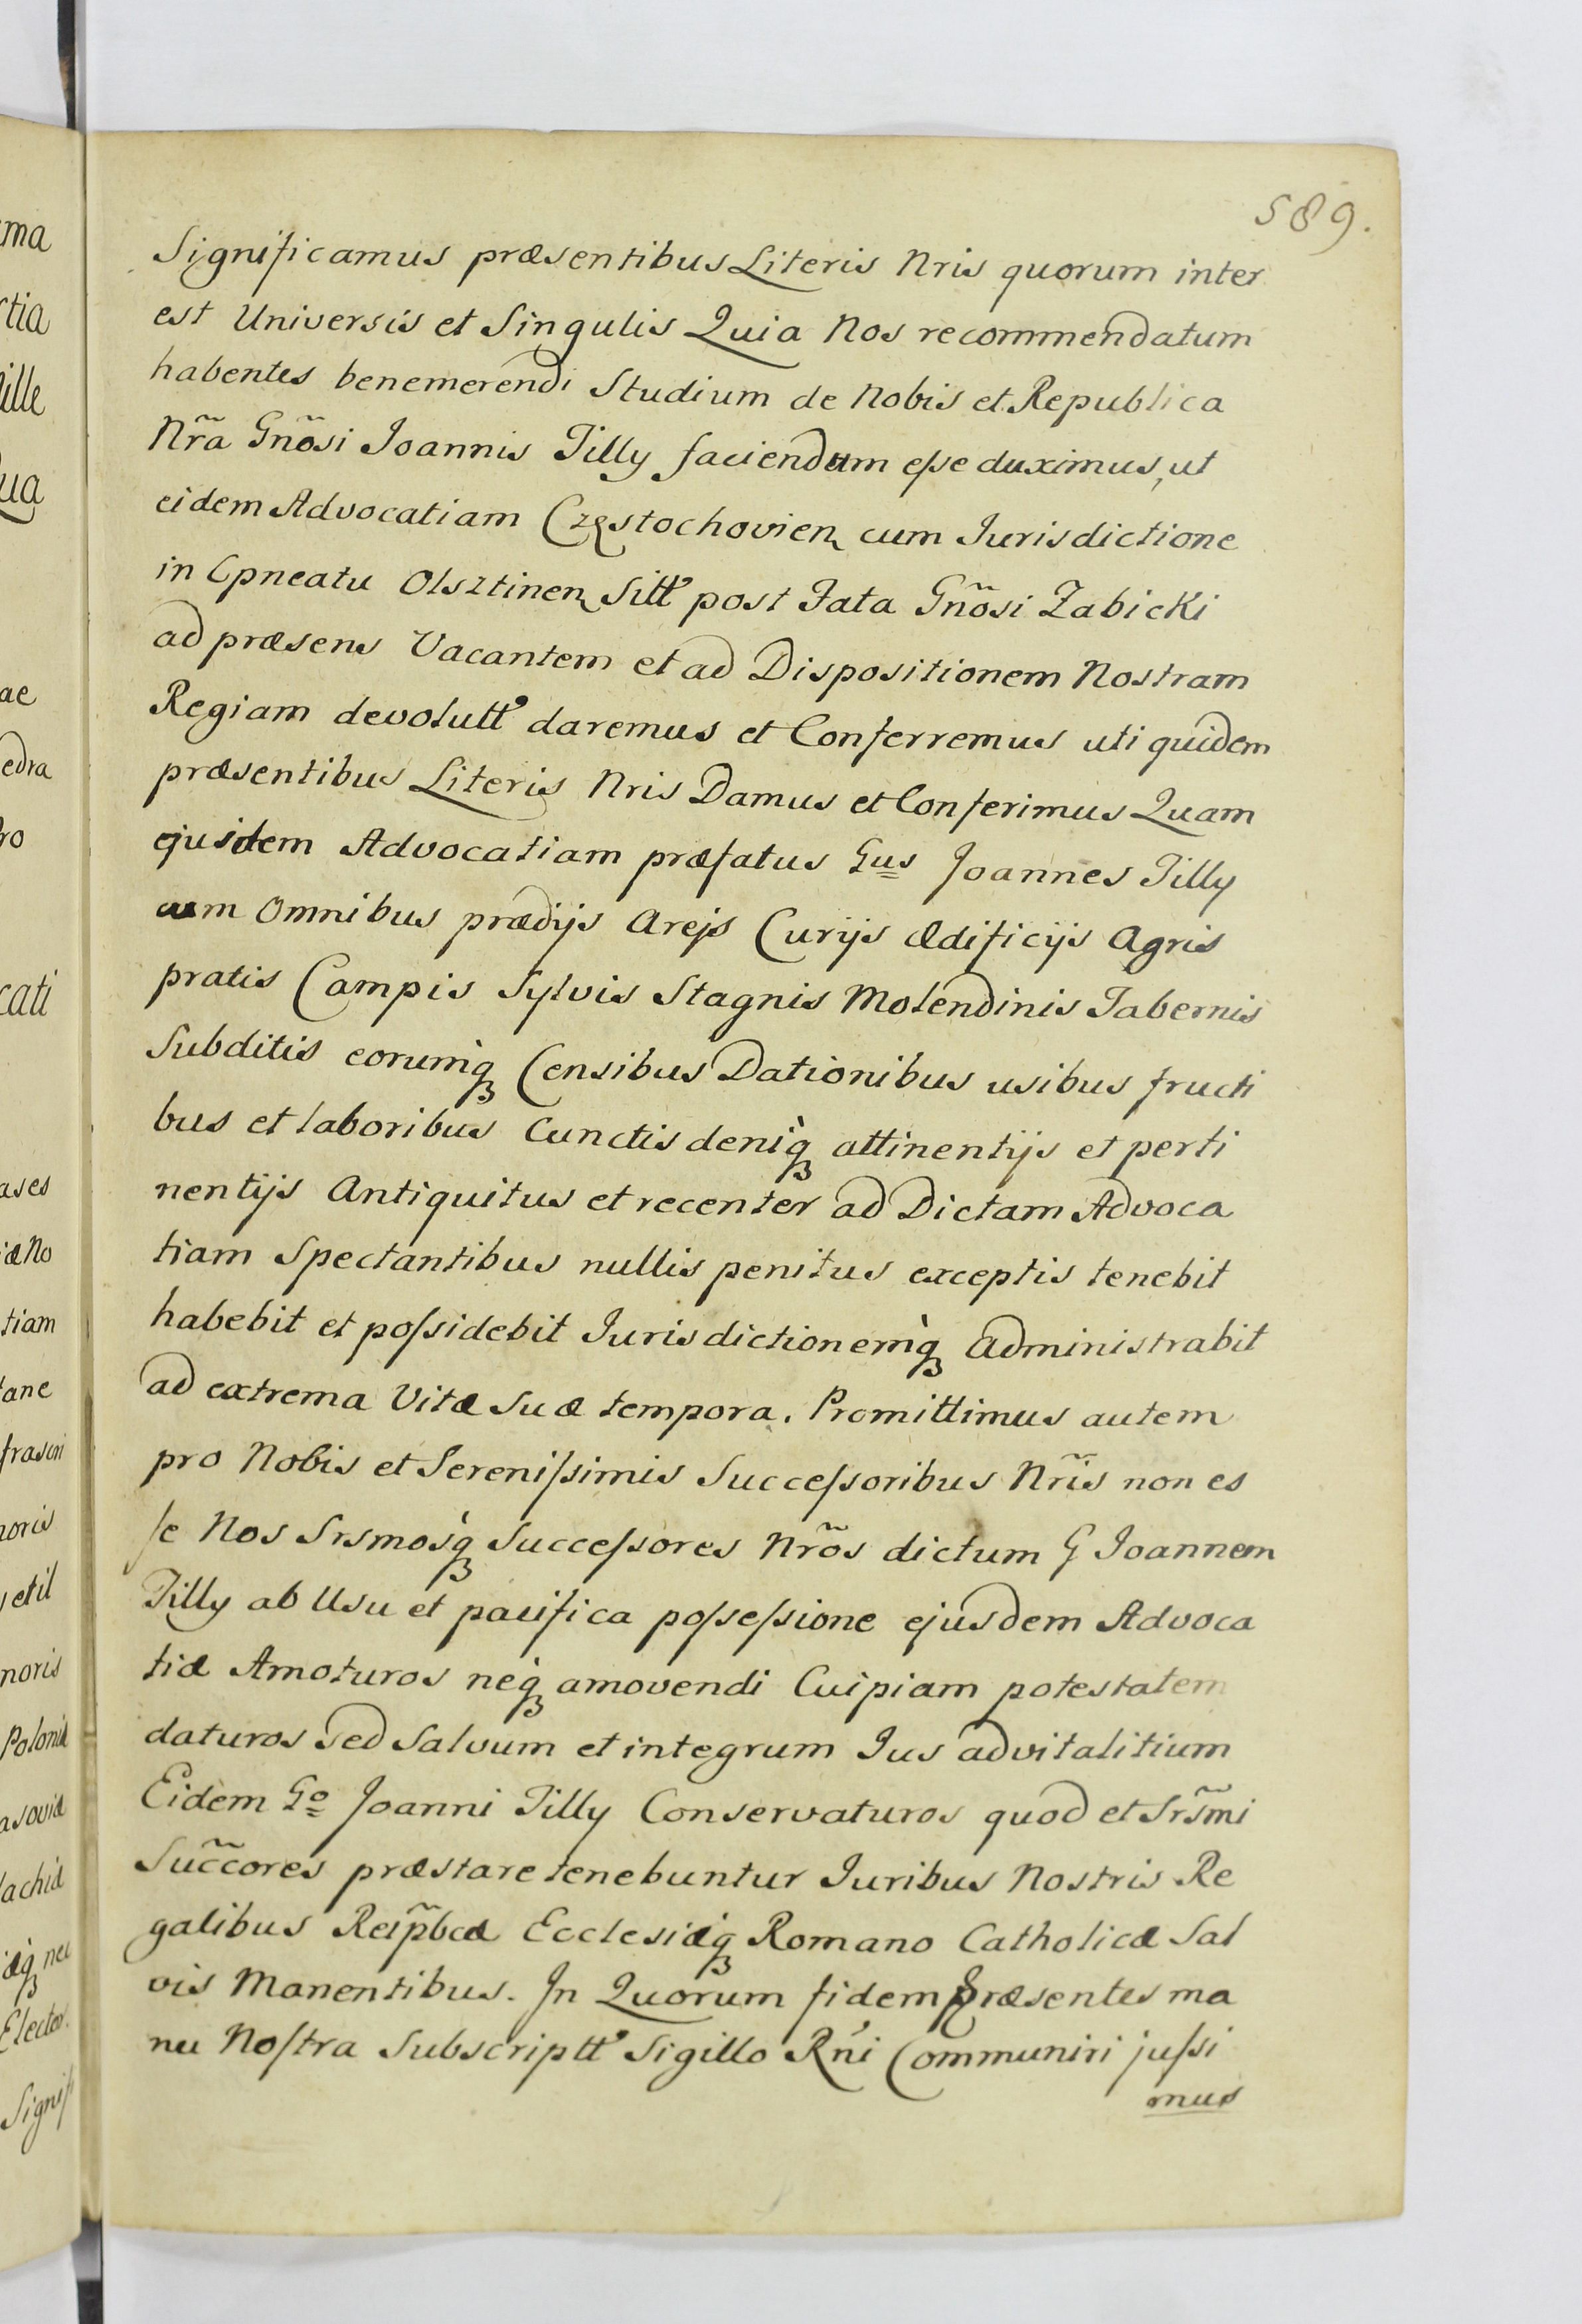 589.
Significamus præsentibus Literis Nris quorum inter
est Universis et Singulis Quia Nos recommendatum
habentes benemerendi Studium de Nobis et Republica
Nr̃a Gnõsi Joannis Tilly faciendum eſse duximus, ut
eidem Advocatiam Częstochovien cum Jurisdictione
in Cpneatu Olsztinen Sitt̉ post Fata Gnõsi Zabicki
ad præsens Vacantem et ad Dispositionem Nostram
Regiam devolutt̉ daremus et Conferremus uti quidem
præsentibus Literis Nris Damus et Conferimus Quam
ejusdem Advocatiam præfatus Gus Joannes Tilly
cum Omnibus prædijs Arejs Curijs Ædificijs Agris
pratis Campis Sylvis Stagnis Molendinis Tabernis
Subditis eorumq́ꝫ Censibus Dationibus usibus fructi
bus et laboribus Cunctis deniq́ꝫ attinentijs et perti
nentijs Antiquitus et recenter ad Dictam Advoca
tiam Spectantibus nullis penitus exceptis tenebit
habebit et poſsidebit Jurisdictionemq́ꝫ Administrabit
ad extrema Vitæ Suæ tempora. Promittimus autem
pro Nobis et Sereniſsimis Succeſsoribus Nr̃is non es
ſe Nos Srsmosq́ꝫ Succeſsores Nrõs dictum G Joannem
Tilly ab Usu et pacifica poſseſsione ejusdem Advoca
tiæ Amoturos neq́ꝫ amovendi Cuipiam potestatem
daturos Sed Salvum et integrum Jus advitalitium
Eidem Go Joanni Tilly Conservaturos quod et Srs̃mi
Suc̃cores præstare tenebuntur Juribus Nostris Re
galibus Reip̃bcæ Ecclesiæq́ꝫ Romano Catholicæ Sal
vis Manentibus. In Quorum fidem Præsentes ma
nu Noſtra Subscriptt̉ Sigillo Rńi Communiri juſsi
mus